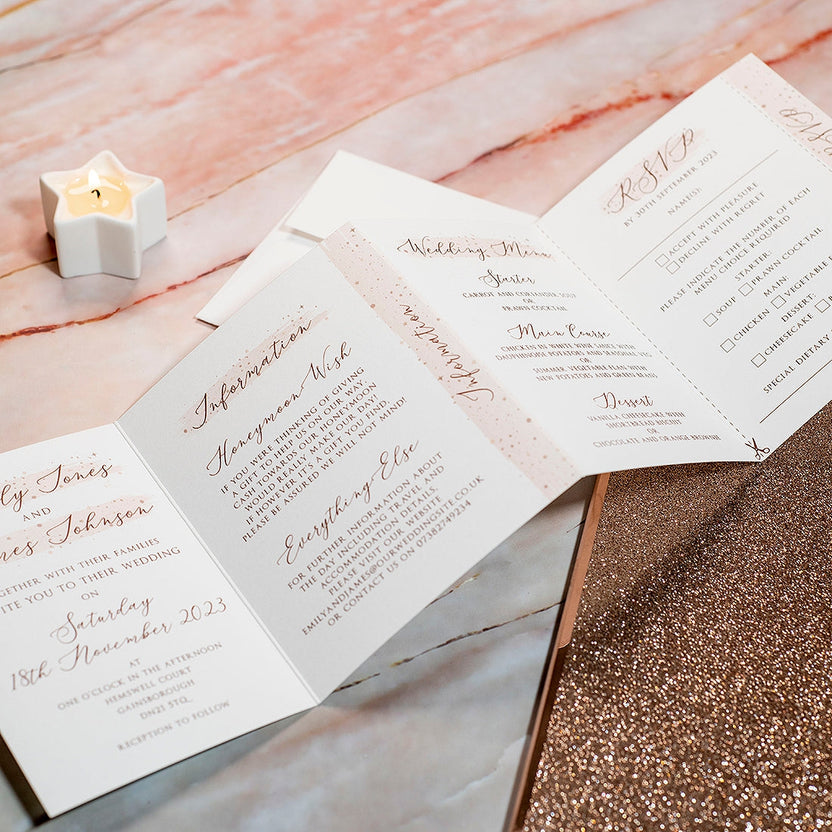 ly Jones
AND
mes Johnson
GETHER WITH THEIR FAMILIES
ITE YOU TO THEIR WEDDING
ON
Saturday
18th November 2023
AT
ONE O'CLOCK IN THE AFTERNOON
HEMSWELL COURT
GAINSBOROUGH
DN21 5TQ
RECEPTION TO FOLLOW
Information
Honeymoon Wish
IF YOU WERE THINKING OF GIVING
A GIFT TO HELP US ON OUR WAY
CASH TOWARDS OUR HONEYMOON
WOULD REALLY MAKE OUR DAY!
IF HOWEVER, IT'S A GIFT YOU FIND,
PLEASE BE ASSURED WE WILL NOT MIND!
Everything Else
FOR FURTHER INFORMATION ABOUT
THE DAY INCLUDING TRAVEL AND
ACCOMMODATION DETAILS,
PLEASE VISIT OUR WEBSITE
EMILYANDJAMES@OURWEDDINGSITE.CO.UK
OR CONTACT US ON 07382749234
Information
Wedding Menu
Starter
CARROT AND CORIANDER SOUP
OR
PRAWN COCKTAIL
Main Course
CHICKEN IN WHITE WINE SAUCE WITH
DAUPHINOIS POTATOES AND
OR
SUMMER VEGETABLE FLAN WITH
NEW POTATOES AND GREEN BEANS
Dessert
VANILLA CHEESECAKE WITH
SHORTBREAD BISCUIT
OR
CHOCOLATE AND ORANGE BROWNIE
RSVP
BY 30TH SEPTEMBER 2023
NAME(S):
ACCEPT WITH PLEASURE
DECLINE WITH REGRET
PLEASE INDICATE THE NUMBER OF EACH
MENU CHOICE REQUIRED
STARTER:
SOUP PRAWN COCKTAIL
MAIN:
CHICKEN VEGETABLE
DESSERT
CHEESECAKE
SPECIAL DIETARY
RSVP